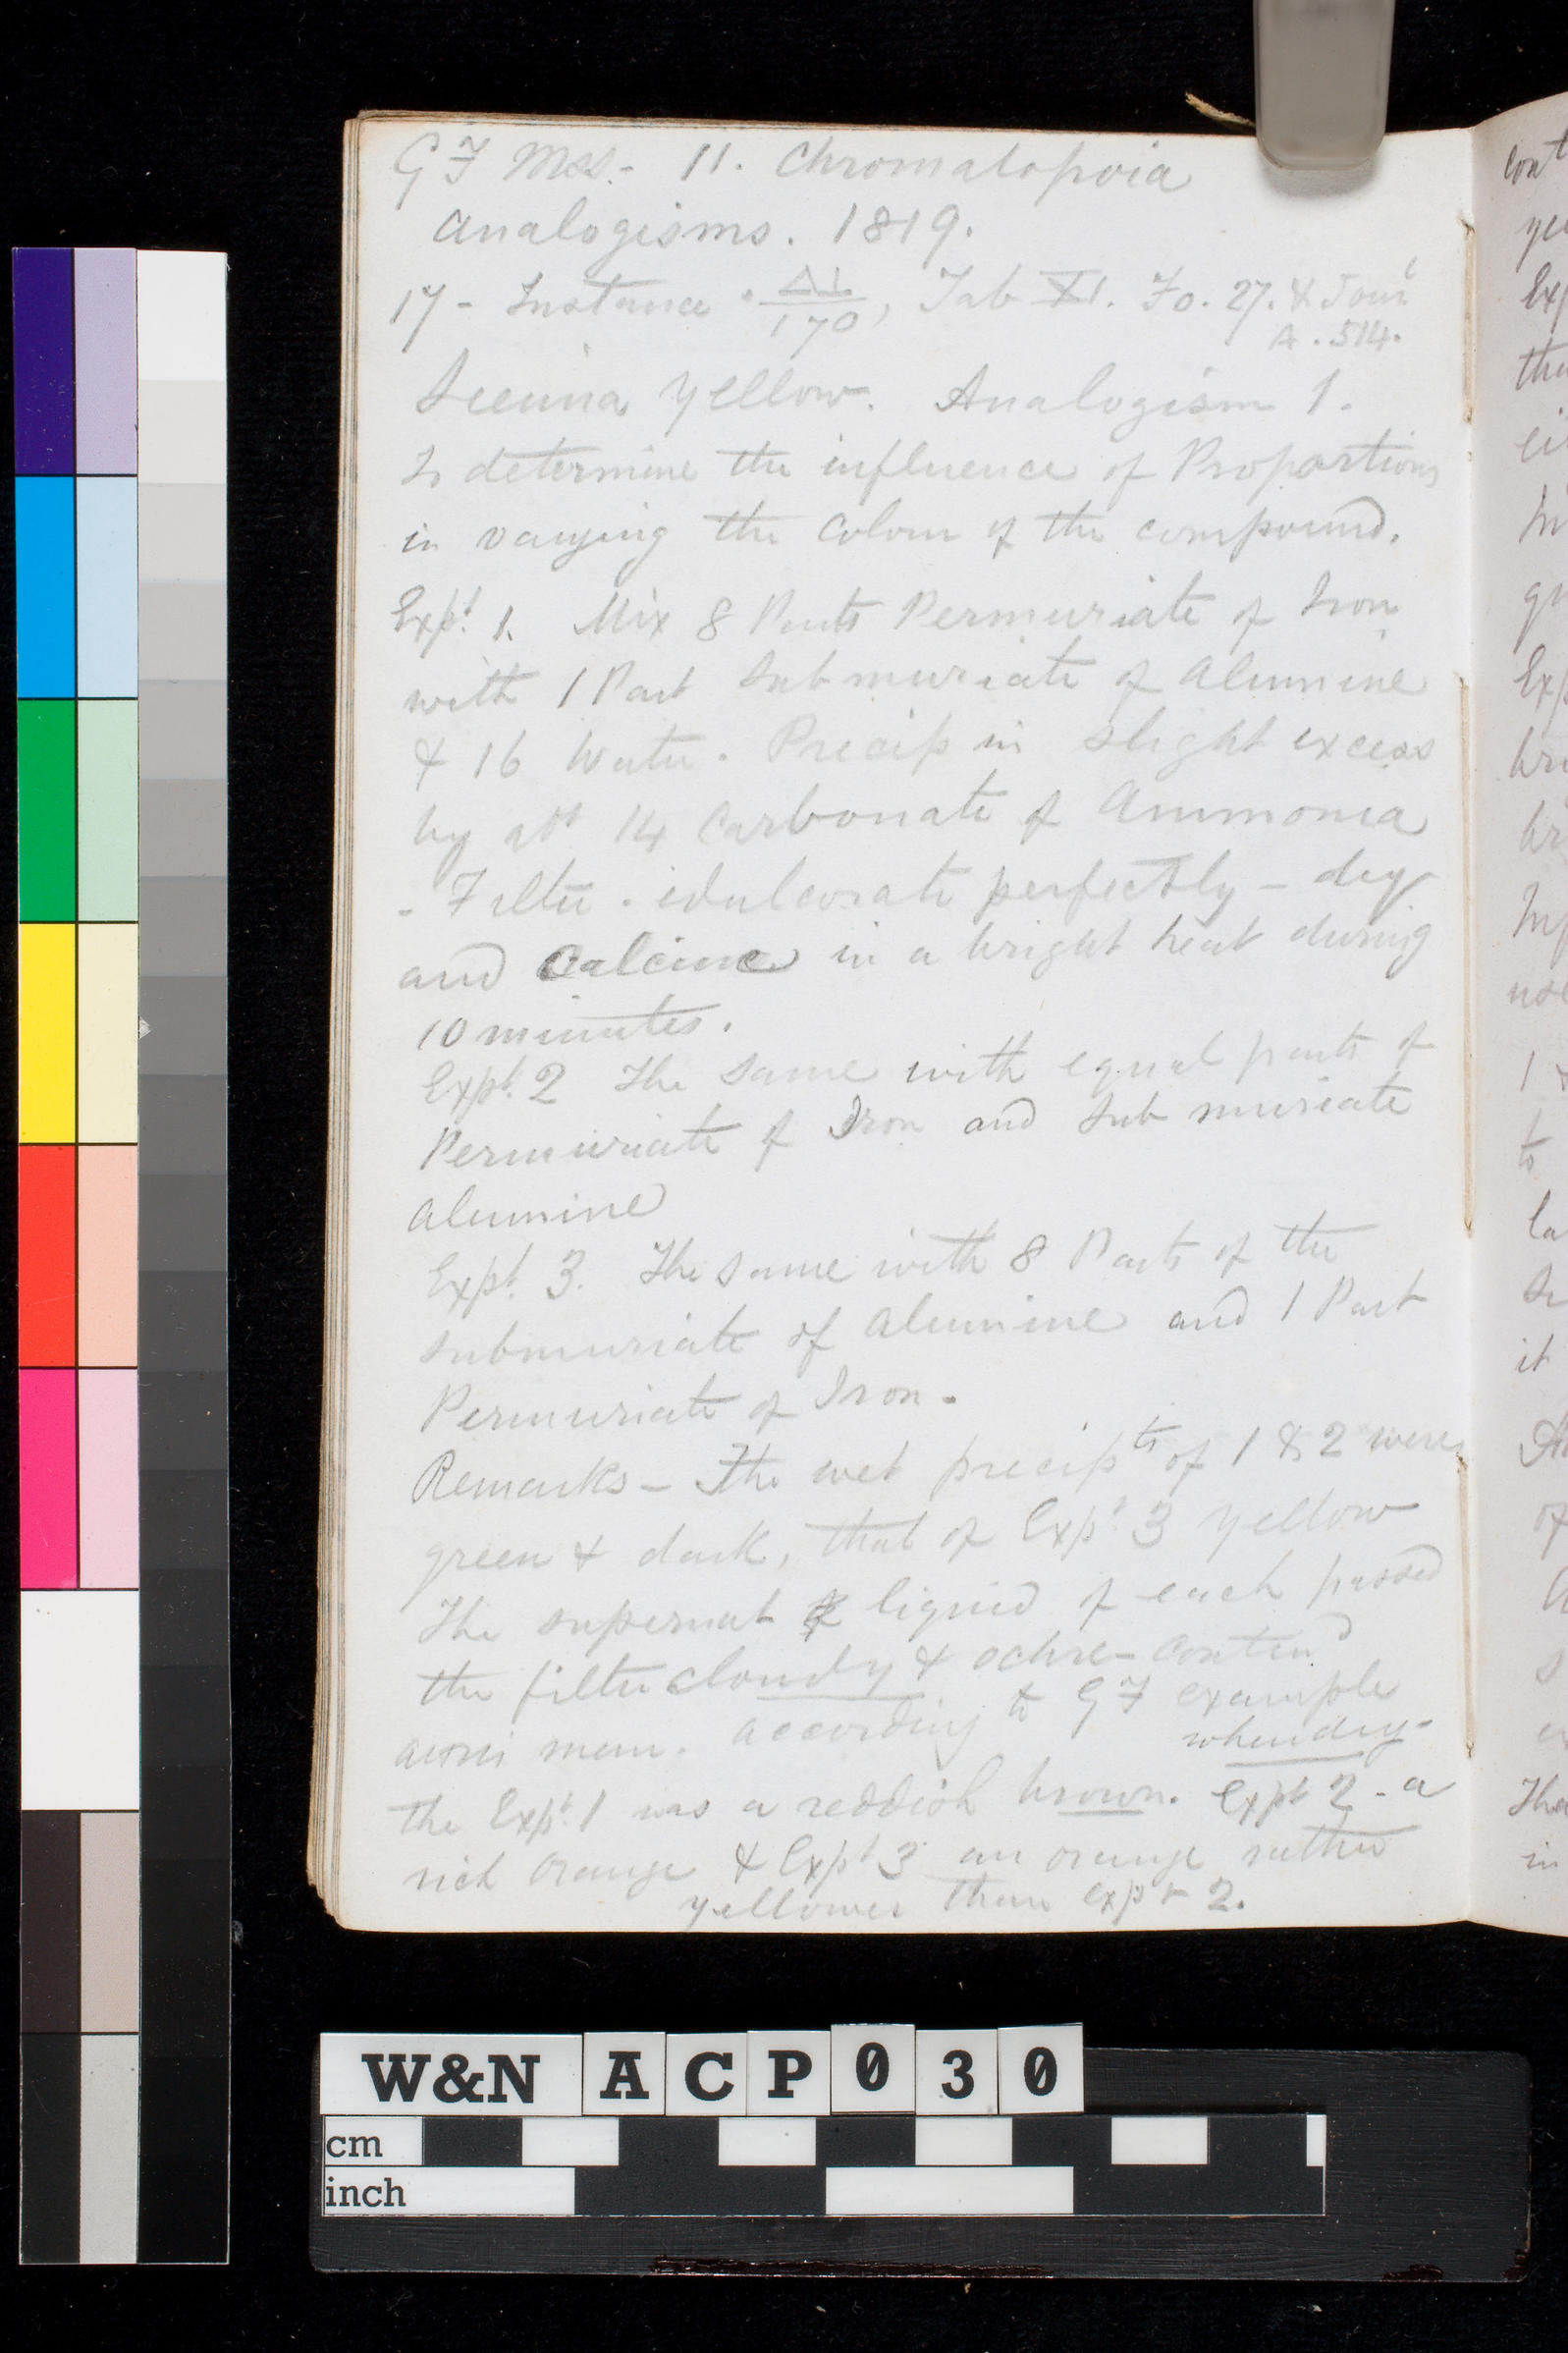 GF Mss.- 11. Chromatopoia
analogisms. 1819.
17- Instance . 170, Tab XI. Fo. 27. & Jour
A. 514.
Sienna Yellow. Analogism 1.
To determine the influence of Proportions
in varying the Colour of the compound.
Expt. 1. Mix 8 Parts Permuriate of Iron
with 1 Part Submuriate of Alumine
& 16 Water. Precip in slight excess
by abt 14 Carbonate of Ammonia
- Filter - edulcorate perfectly - dry
and Calcine in a bright heat during
10 minutes.
Expt. 2 The same with equal parts of
Permuriate of Iron and Sub muriate
alumine
Expt. 3. The same with 8 Parts of the
submuriate of Alumine and 1 Part
Permuriate of Iron.
Remarks - The wet precipts of 1 & 2 were
green & dark, that of Expt. 3 yellow
The supernat liquid of each passed
the filter cloudy & ochre-
mem. according to GF example
when dry-
the Expt. 1 was a reddish brown. Expt 2 - a
rich orange & Expt 3 an orange rather
yellower than expt 2.
W&N ACP030
cm
inch